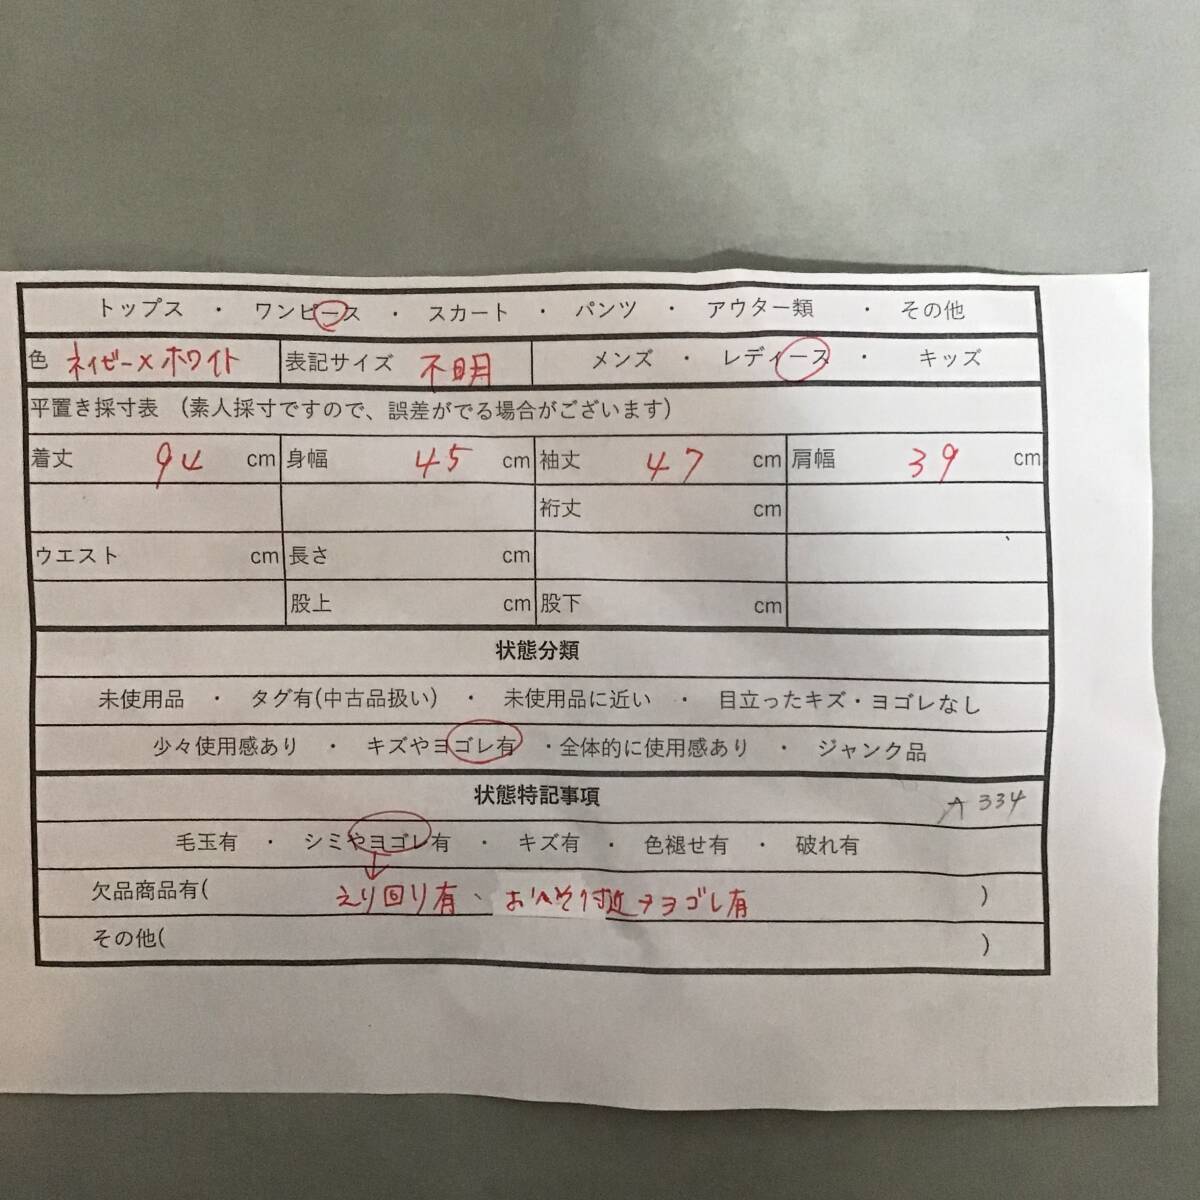 トップス ・ ワンピース ・ スカート ・ パンツ ・ アウター類 ・ その他
色 ネイビー×ホワイト 表記サイズ 不明 メンズ ・ レディース ・ キッズ
平置き採寸表 (素人採寸ですので、誤差がでる場合がございます)
着丈 94 cm 身幅 45 cm 袖丈 47 cm 肩幅 39 cm
裄丈 cm
ウエスト cm 長さ cm
股上 cm 股下 cm
状態分類
未使用品 ・ タグ有(中古品扱い) ・ 未使用品に近い ・ 目立ったキズ・ヨゴレなし
少々使用感あり ・ キズやヨゴレ有 ・全体的に使用感あり ・ ジャンク品
状態特記事項 A 334
毛玉有 ・ シミやヨゴレ有 ・ キズ有 ・ 色褪せ有 ・ 破れ有
欠品商品有( えり回り有、おへそ付近ヨゴレ有 )
その他( )